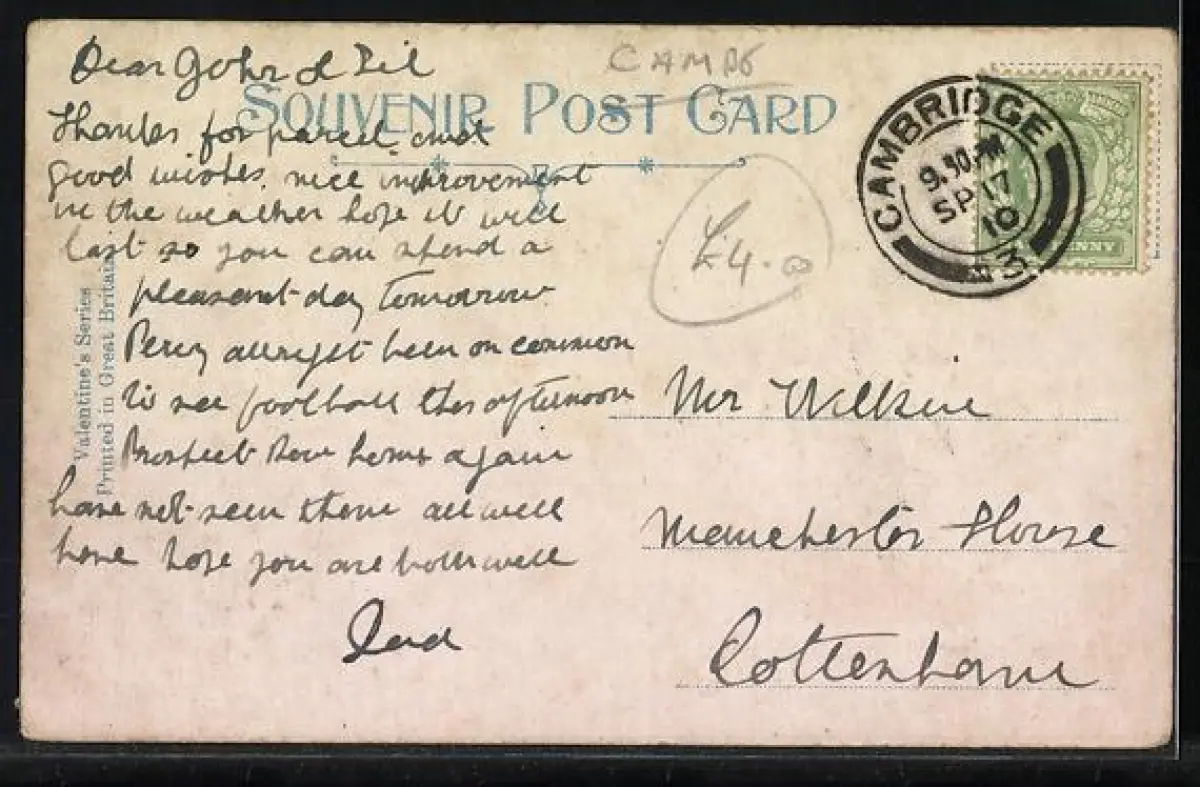 Dear John & Zil
CAMBS
SOUVENIR POST CARD
Thanks for parcel and
good wishes. nice improvement
in the weather hope it will
last so you can spend a
pleasant day tomorrow
Percy allright been on common
to see football this afternoon
Prospect Row home again
have not seen them all well
home hope you are both well
Dad
Valentine's Series
Printed in Great Britain
£4.00
CAMBRIDGE
9.30 PM
SP 17
10
3
NNY
Mr Wilkin
Manchester House
Cottenham